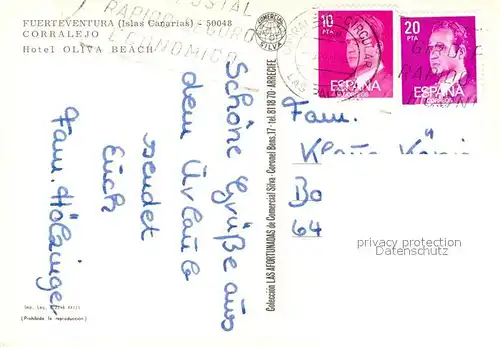 FUERTEVENTURA (Islas Canarias) - 50048
CORRALEJO
Hotel OLIVA BEACH
POSTAL
RAPIDO
ECONOMICO
COMERCIAL
SILVA
10
PTA
ESPAÑA
CORREOS
20
PTA
ESPAÑA
CORREOS
RAPIDO
Schöne Grüße aus
dem Urlaub
sendet
Euch
Fam. Hölzinger
Colección LAS AFORTUNADAS de Comercial Silva - Coronel Bens, 17 - tel. 81 18 70 - ARRECIFE
Fam.
Bo
64
privacy protection
DELCAMPE
Dep. Leg.
(Prohibida la reproducción)